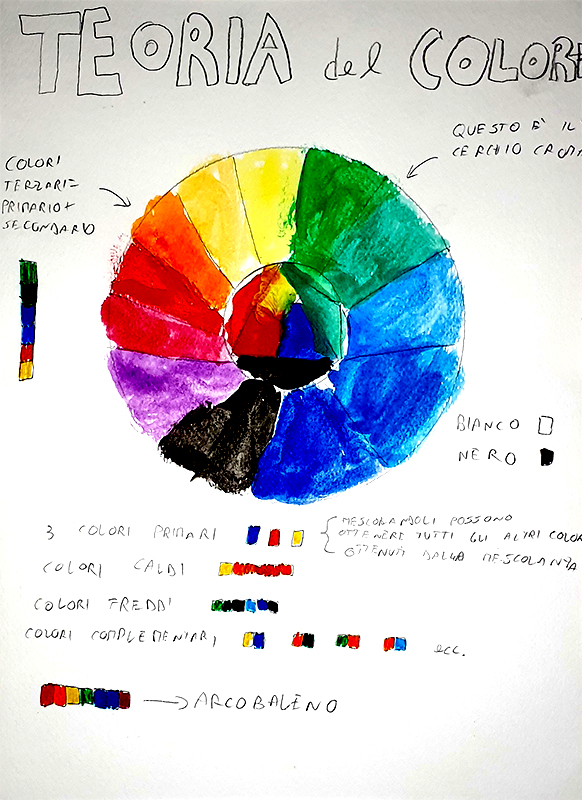 TEORIA del COLORE
QUESTO È IL
CERCHIO CROMA
COLORI
TERZARI=
PRIMARIO+
SECONDARIO
BIANCO
NERO
3 COLORI PRIMARI
MESCOLANDOLI POSSONO
OTTENERE TUTTI GLI ALTRI COLOR
OTTENUTI DALLA MESCOLANZA
COLORI CALDI
COLORI FREDDI
COLORI COMPLEMENTARI
ecc.
ARCOBALENO